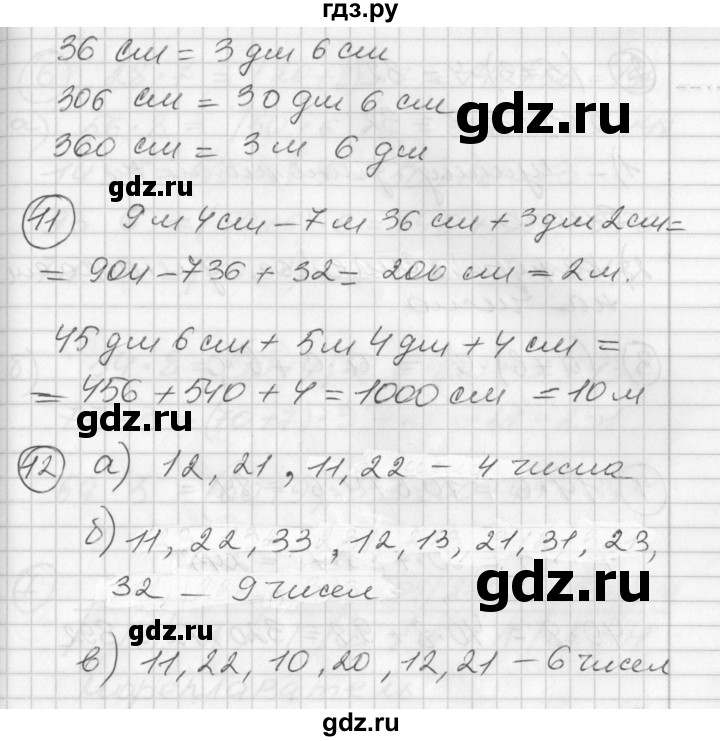 гдз.ру
36 см = 3 дм 6 см
306 см = 30 дм 6 см
gdz.ru
360 см = 3 м 6 дм
gdz.ru
11 9 м 4 см – 7 м 36 см + 3 дм 2 см =
= 904 – 736 + 32 = 200 см = 2 м.
gdz.ru
45 дм 6 см + 5 м 4 дм + 4 см =
= 456 + 540 + 4 = 1000 см = 10 м
gdz.ru
12 а) 12, 21, 11, 22 – 4 числа
gdz.ru
б) 11, 22, 33, 12, 13, 21, 31, 23,
32 – 9 чисел
gdz.ru
в) 11, 22, 10, 20, 12, 21 – 6 чисел
gdz.ru